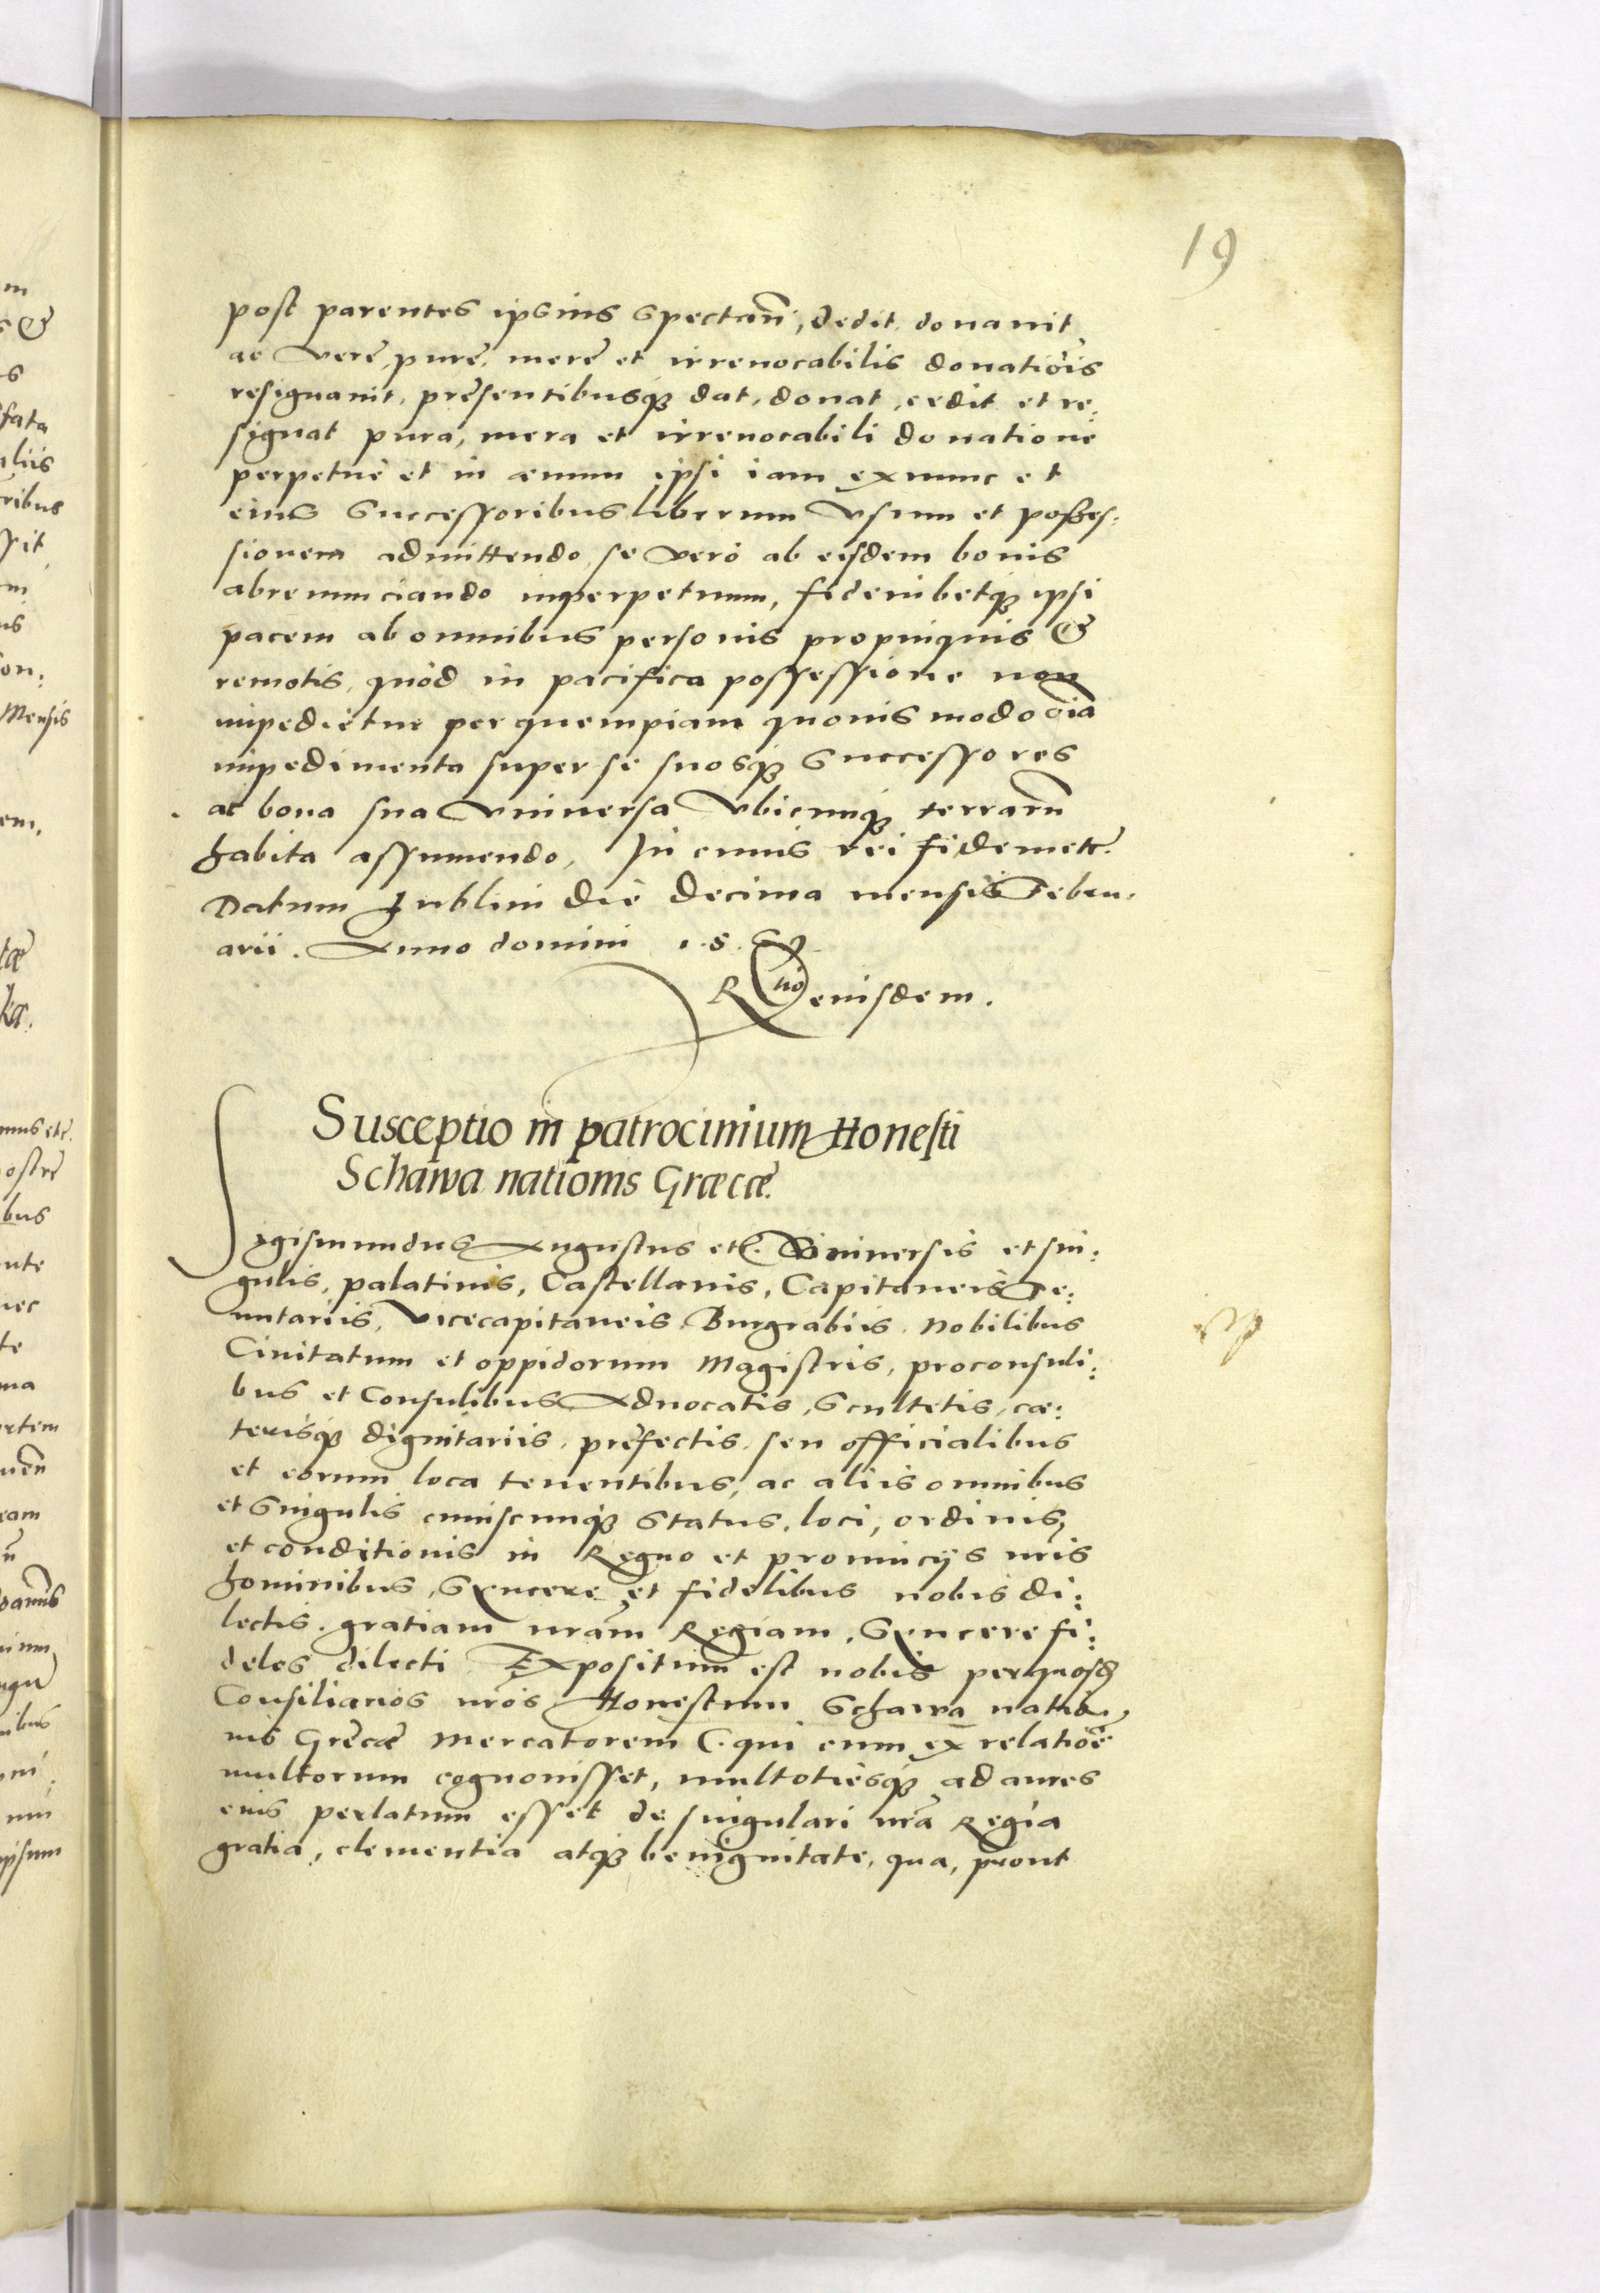 19
post parentes ipsius spectan̄, dedit, donavit,
ac vere, pure, mere et irrevocabilis donatiōis
resignavit, presentibusq; dat, donat, cedit et re:
signat pura, mera et irrevocabili donatione
perpetue et in aevum ipsi iam ex nunc et
eius successoribus liberum vsum et posses:
sionem admittendo, se vero ab eisdem bonis
abrenunciando inperpetuum, fideiubetq; ipsi
pacem ab omnibus personis propinquis &
remotis, quòd in pacifica possessione non
impedietur per quempiam quovis modo oīa
impedimenta super se suosq; successores
ac bona sua vniversa vbicunq; terrarū
habita assumendo, In cuius rei fidem etc.
Datum Lublini die decima mensis Febru:
arii. Anno domini 1.5.
Rtio eiusdem.
Susceptio in patrocinium Honesti
Schawa nationis Græcæ.
Sigismundus Augustus etc. Vniversis et sin:
gulis, palatinis, Castellanis, Capitaneis Te:
nutariis, Vicecapitaneis Burgrabiis, Nobilibus
Civitatum et oppidorum Magistris, proconsuli:
bus et Consulibus Advocatis, scultetis, cæ:
terisq; dignitariis, præfectis, seu officialibus
et eorum loca tenentibus, ac aliis omnibus
et singulis cuiuscunq; status, loci, ordinis,
et conditionis in Regno et provincijs nris
hominibus, syncere et fidelibus nobis di:
lectis, gratiam nram Regiam, Syncere fi:
deles dilecti. Expositum est nobis per quosd
Consiliarios nros Honestum Schawa natio
nis Grecæ Mercatorem C. qui cum ex relatiōe
multorum cognovisset, multotiesq; ad aures
eius perlatum esset de singulari nra Regia
gratia, clementia atq; benignitate, qua, prout